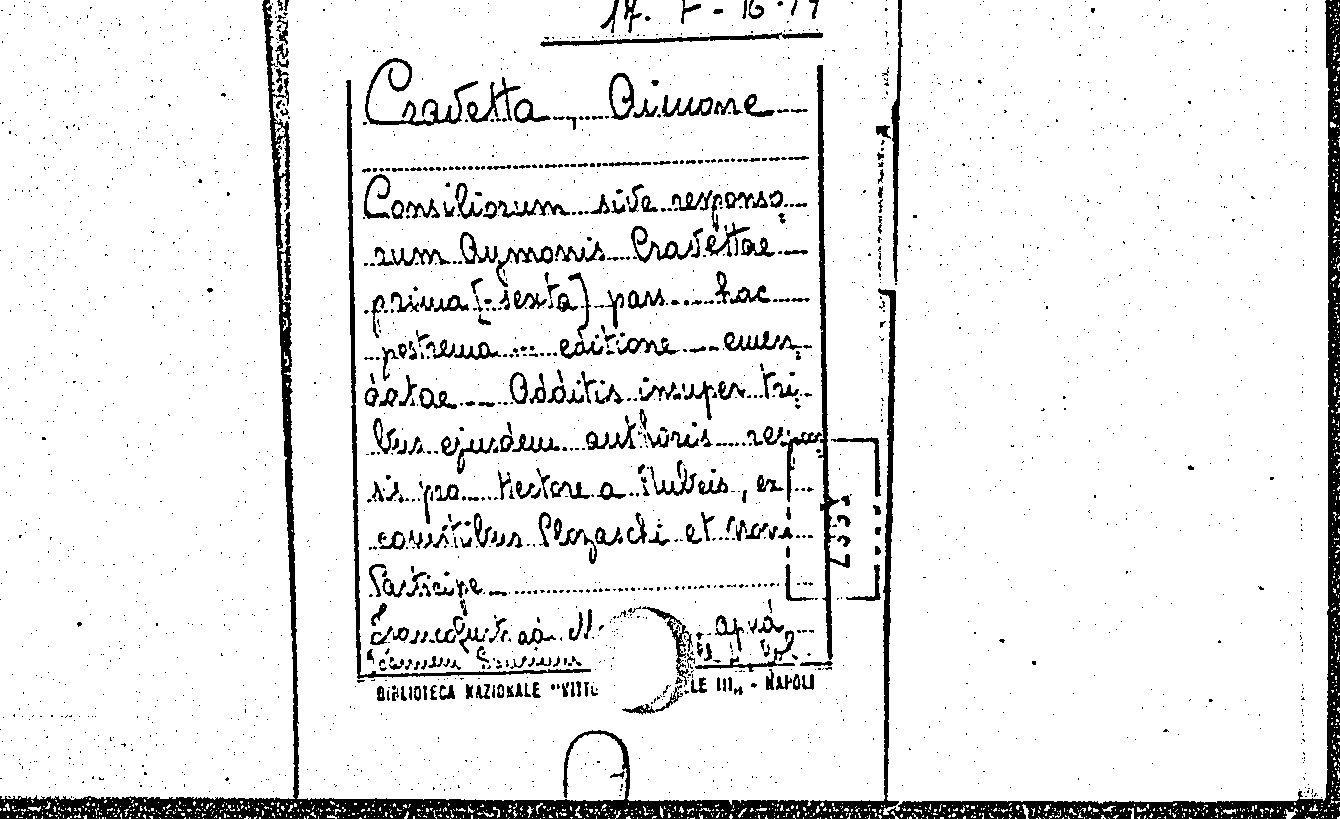 Cravetta, Aimone
Consiliorum sive responso
rum Aymonis Cravettae
prima [-sexta] pars... hac
postrema ... editione ... emen
datae ... Additis insuper tri
bus ejusdem authoris respon
sis pro ... Hectore a Rubeis, ex
comitibus Plozaschi et Novi
Participe
Francofurti ad M. apud
BIBLIOTECA NAZIONALE "VITTO LE III„ - NAPOLI